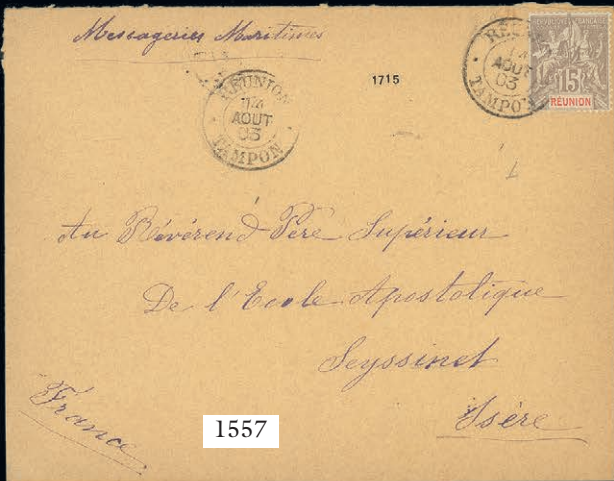 Messageries Maritimes
RÉUNION
14
AOUT
03
TAMPON
1715
RÉUNION
14
AOUT
03
TAMPON
RÉPUBLIQUE FRANÇAISE
15
RÉUNION
Au Révérend Père Supérieur
De l'Ecole Apostolique
Seyssinet
Isère
France
1557